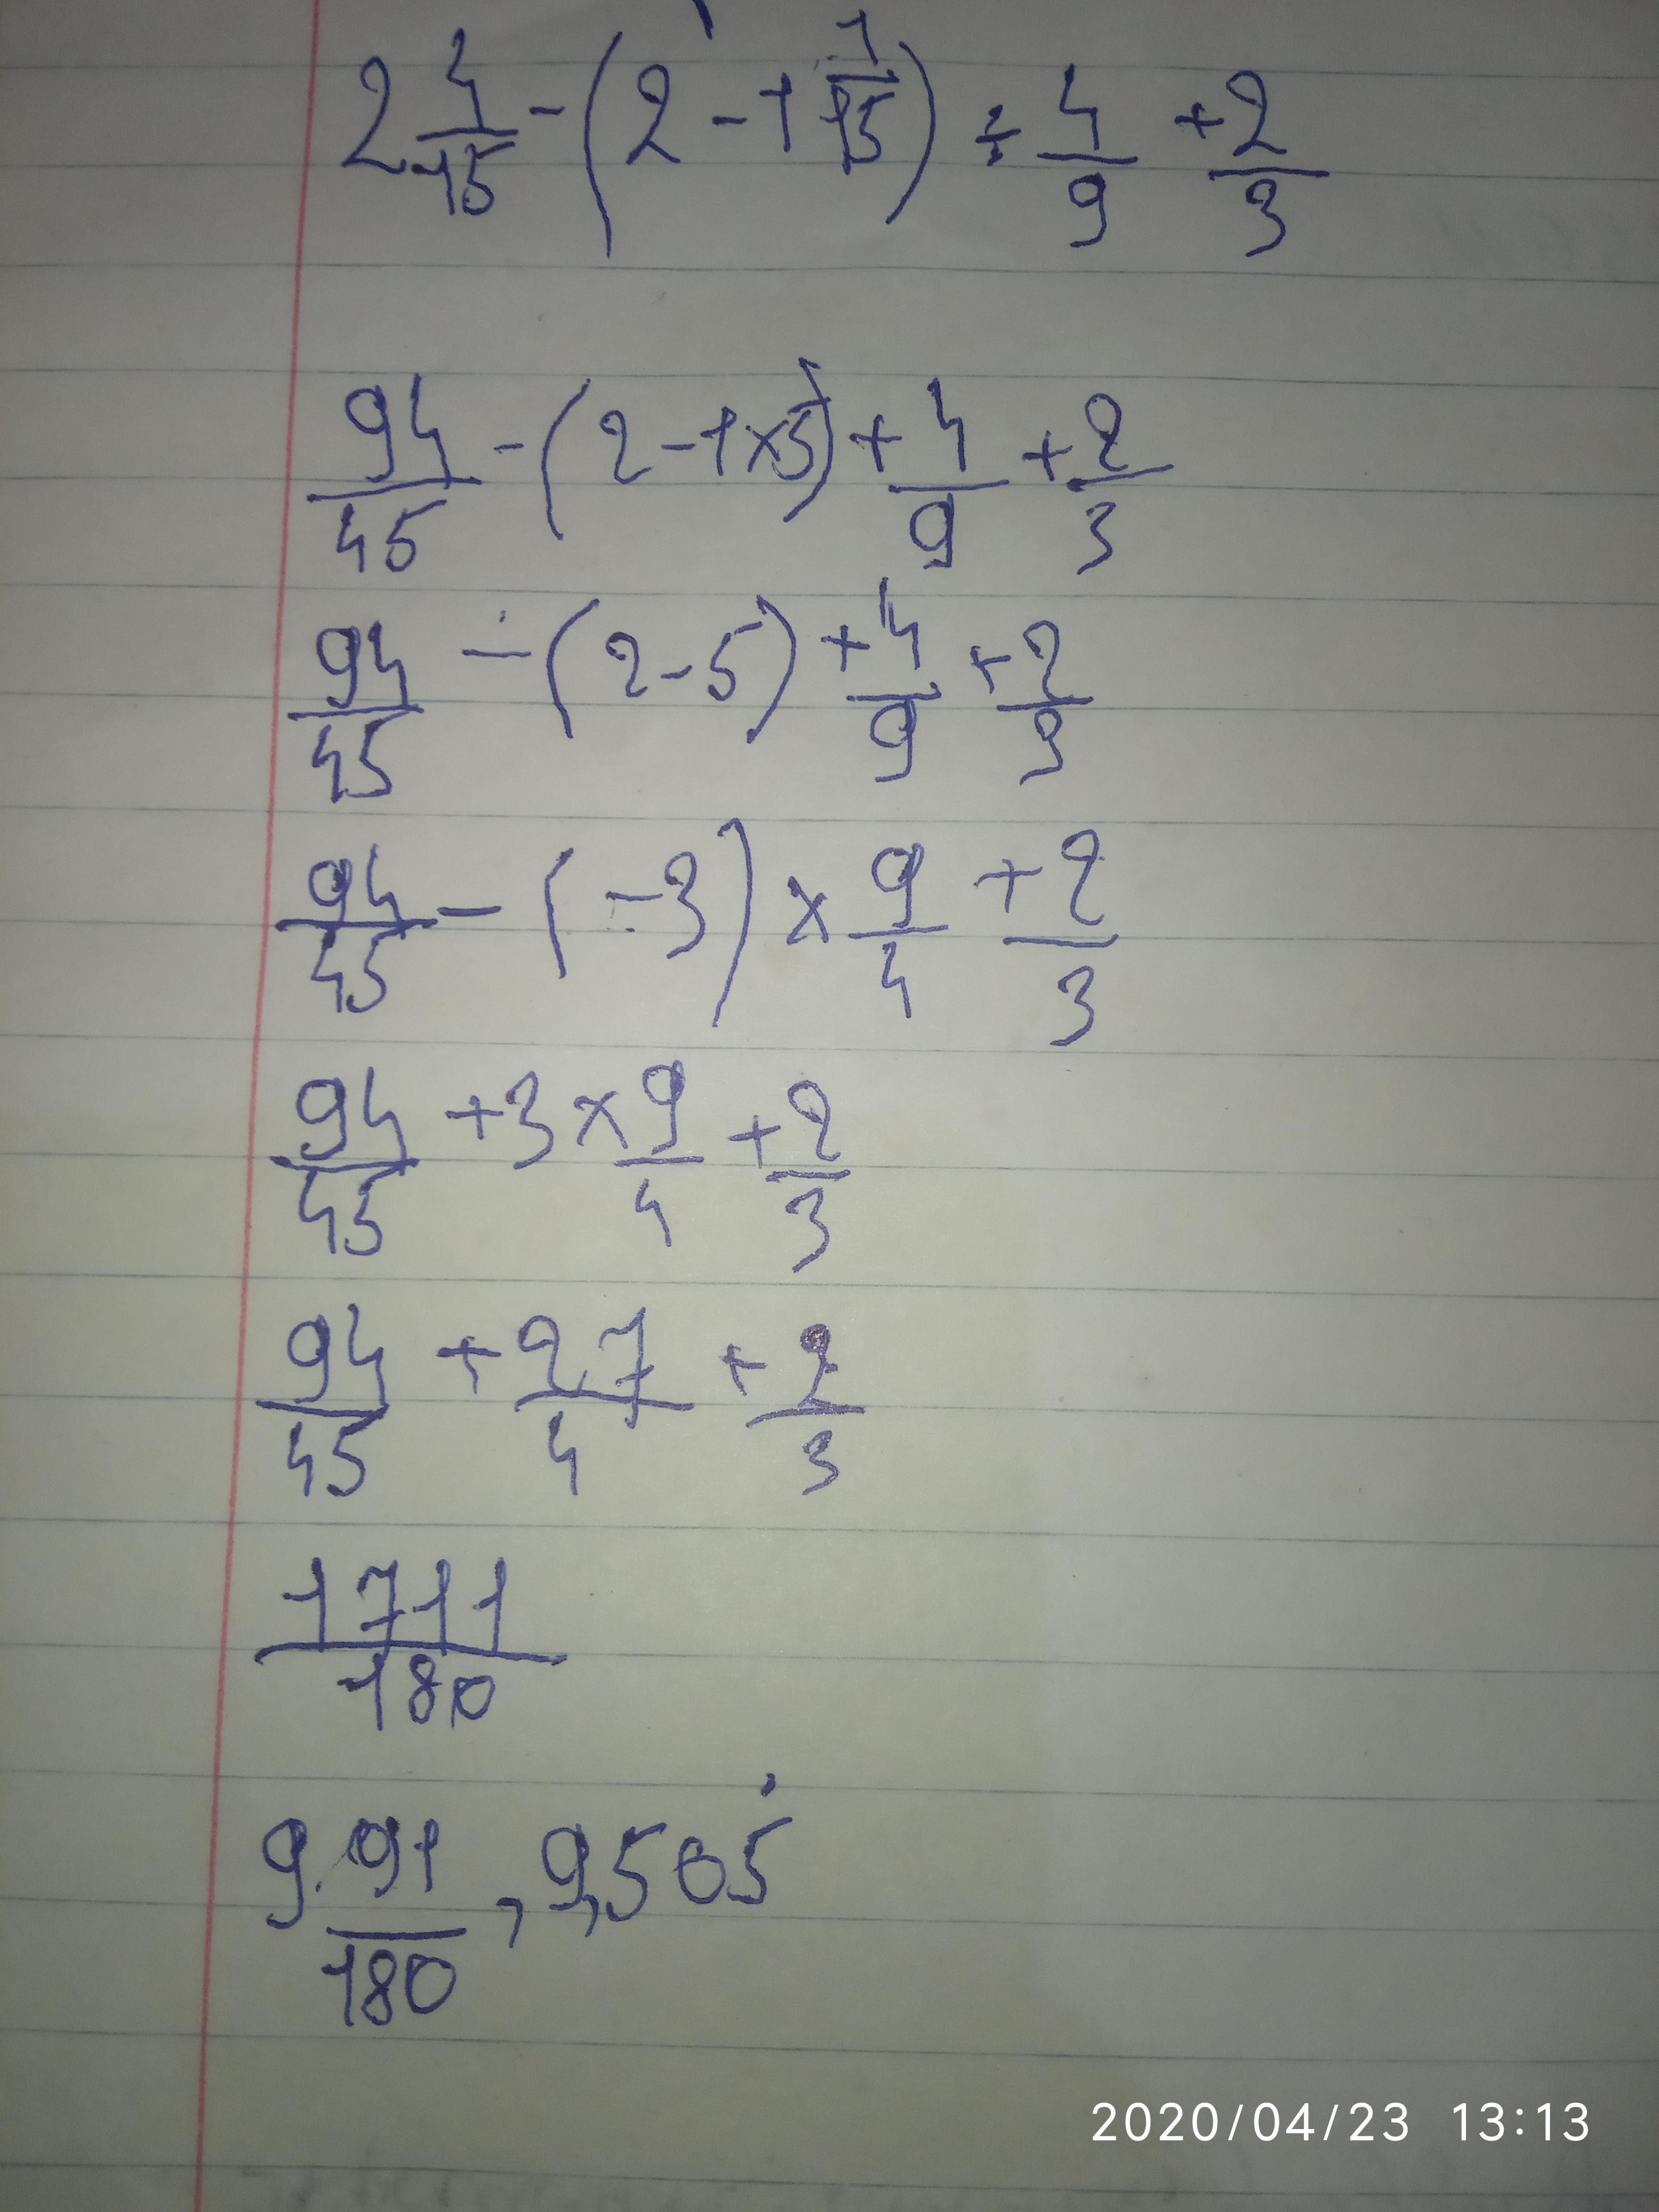 2 4/45 - (2 - 1 1/15) ÷ 4/9 + 2/3
94/45 - (2 - 1 × 5) + 4/9 + 2/3
94/45 - (2 - 5) + 4/9 + 2/3
94/45 - (-3) × 9/4 + 2/3
94/45 + 3 × 9/4 + 2/3
94/45 + 27/4 + 2/3
1711/180
9 91/180 , 9,505
2020/04/23 13:13